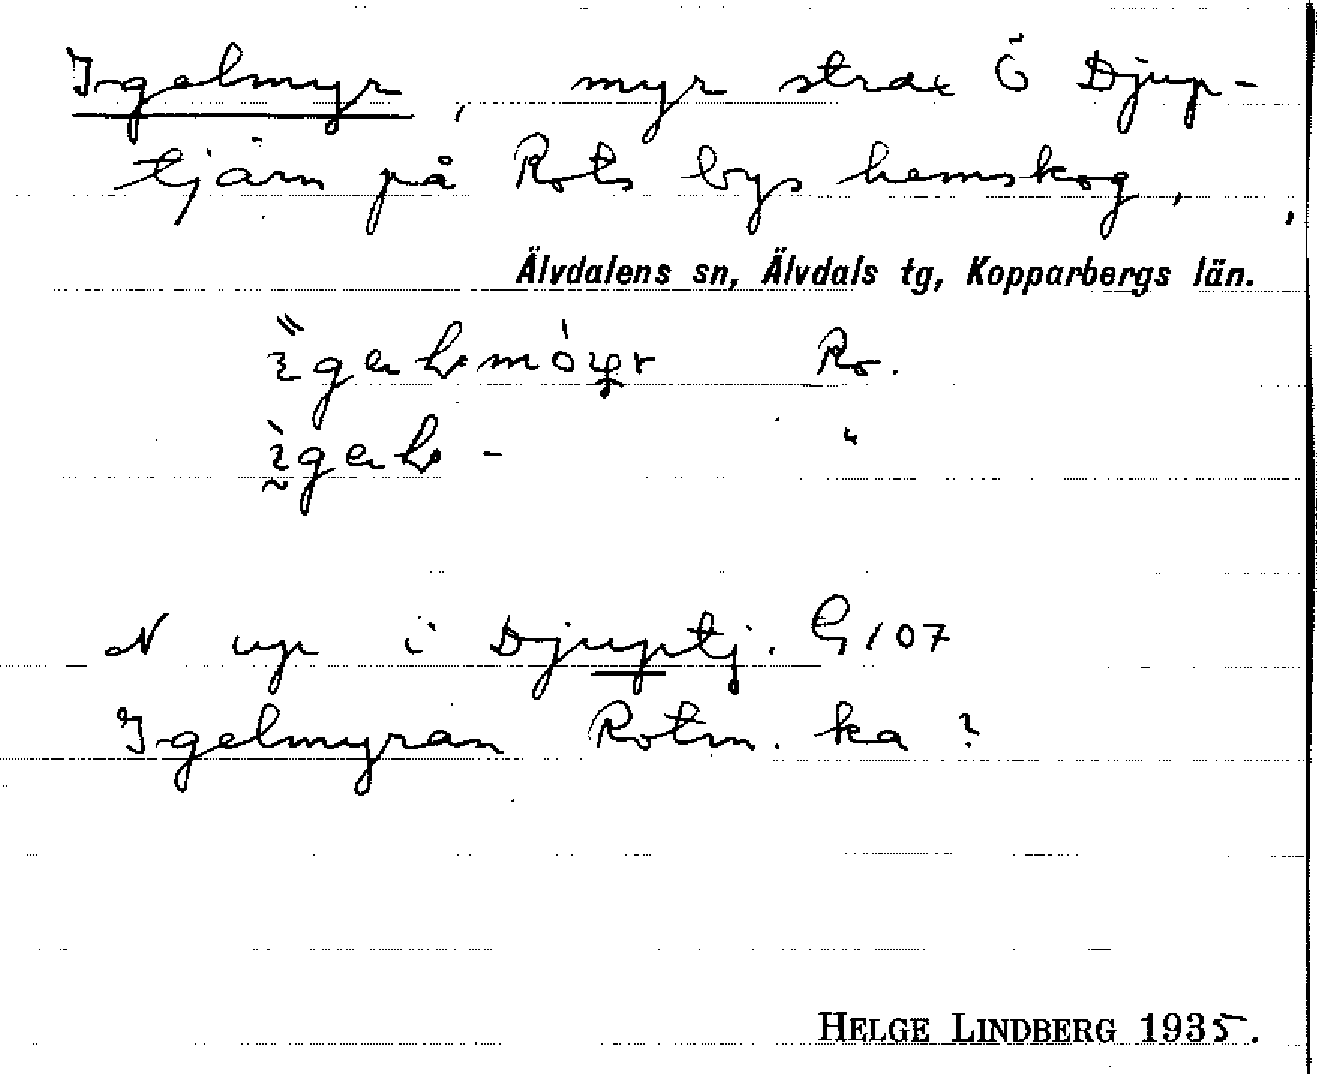 Igelmyr, myr strax Ö Djup-
tjärn på Rots bys hemskog,
Älvdalens sn, Älvdals tg, Kopparbergs län.
Ro.
"
N up i Djuptj. G 107
Igelmyran Rotm. ka ?
HELGE LINDBERG 1935.